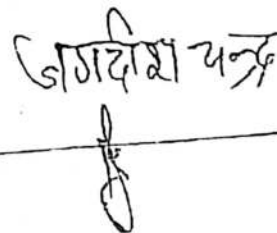 जगदीश चन्द्र